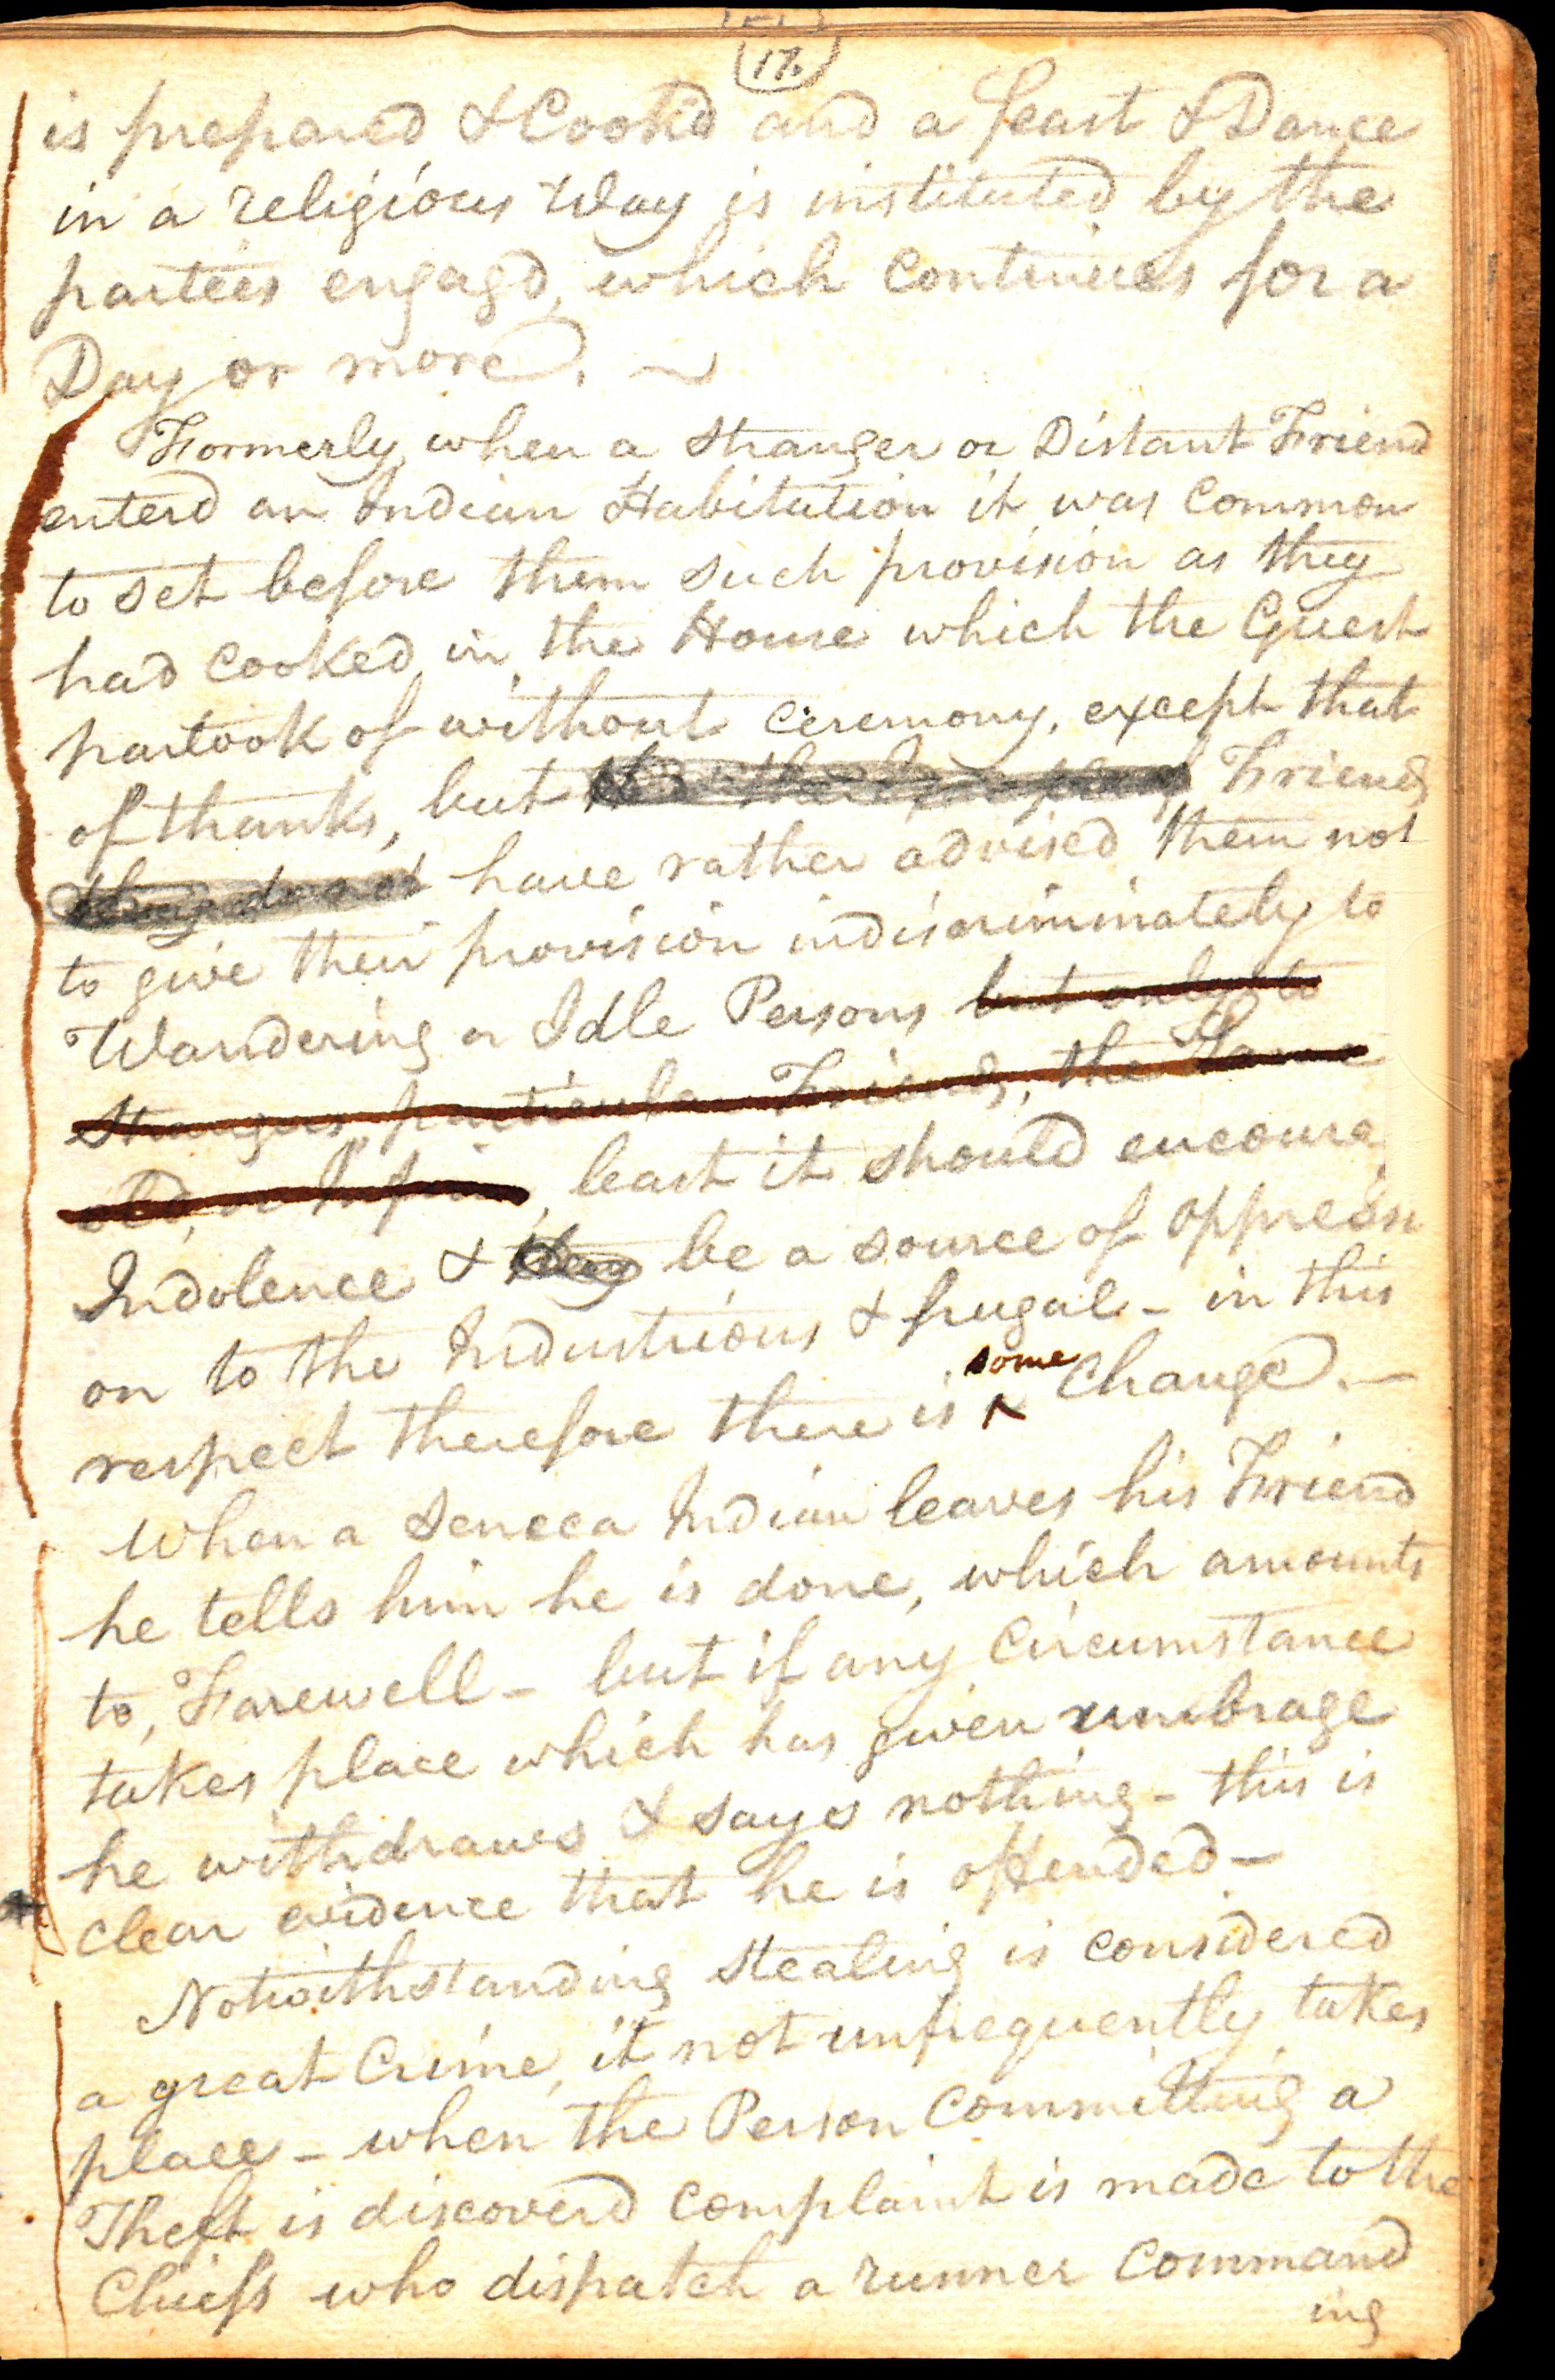 17.
is prepared & Cook'd and a feast & Dance
in a religious Way is instituted by the
parties engagd, which continues for a
Day or more. ~
Formerly when a stranger or Distant Friend
enterd an Indian Habitation it was common
to set before them such provision as they
had cooked in the House which the Guest
partook of without ceremony, except that
of thanks, but Friends
they do not have rather advised them not
to give their provision indiscriminately to
Wandering or Idle Persons but only to
Strangers, particular Friends, the Lame
old, or Infirm, least it should encourag
Indolence & be a source of oppressi
on to the Industrious & frugal - in this
respect therefore there is ^ some change. -
When a Seneca Indian leaves his Friend
he tells him he is done, which amounts
to, Farewell - but if any Circumstance
takes place which has given umbrage
he withdraws & says nothing - this is
clear evidence that he is offended -
Notwithstanding stealing is considered
a great Crime, it not unfrequently takes
place - when the Person Committing a
Theft is discoverd complaint is made to the
Chiefs who dispatch a runner command
ing